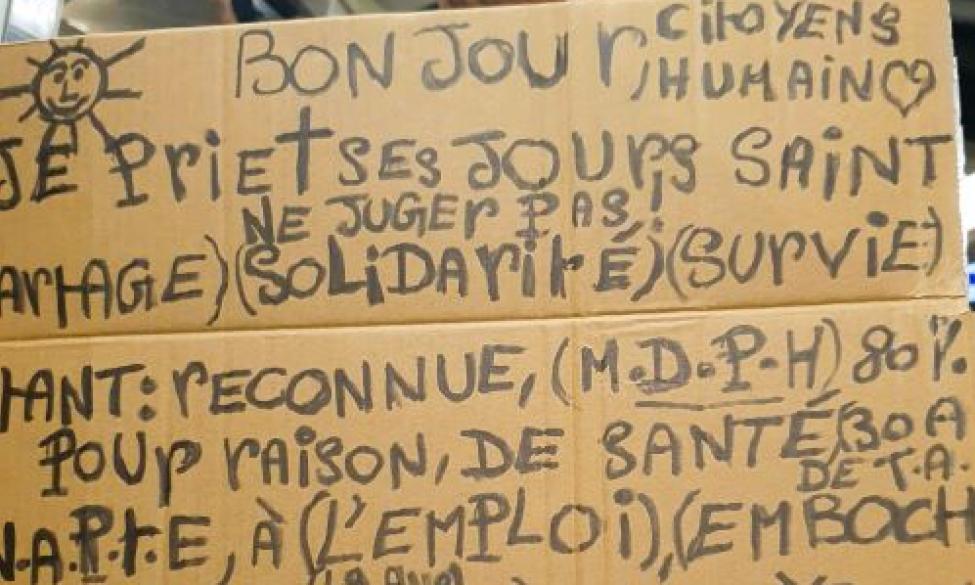 BONJOUR, CITOYENS
HUMAIN
JE PRIET SES JOURS SAINT
NE JUGER PAS
ARTAGE) (SOLIDARITÉ) (SURVIE)
HANT: RECONNUE, (M.D.P.H) 80%
POUR RAISON, DE SANTÉ
DE T.A.
N.A.P.T.E, À (L'EMPLOI), (EMBOCH